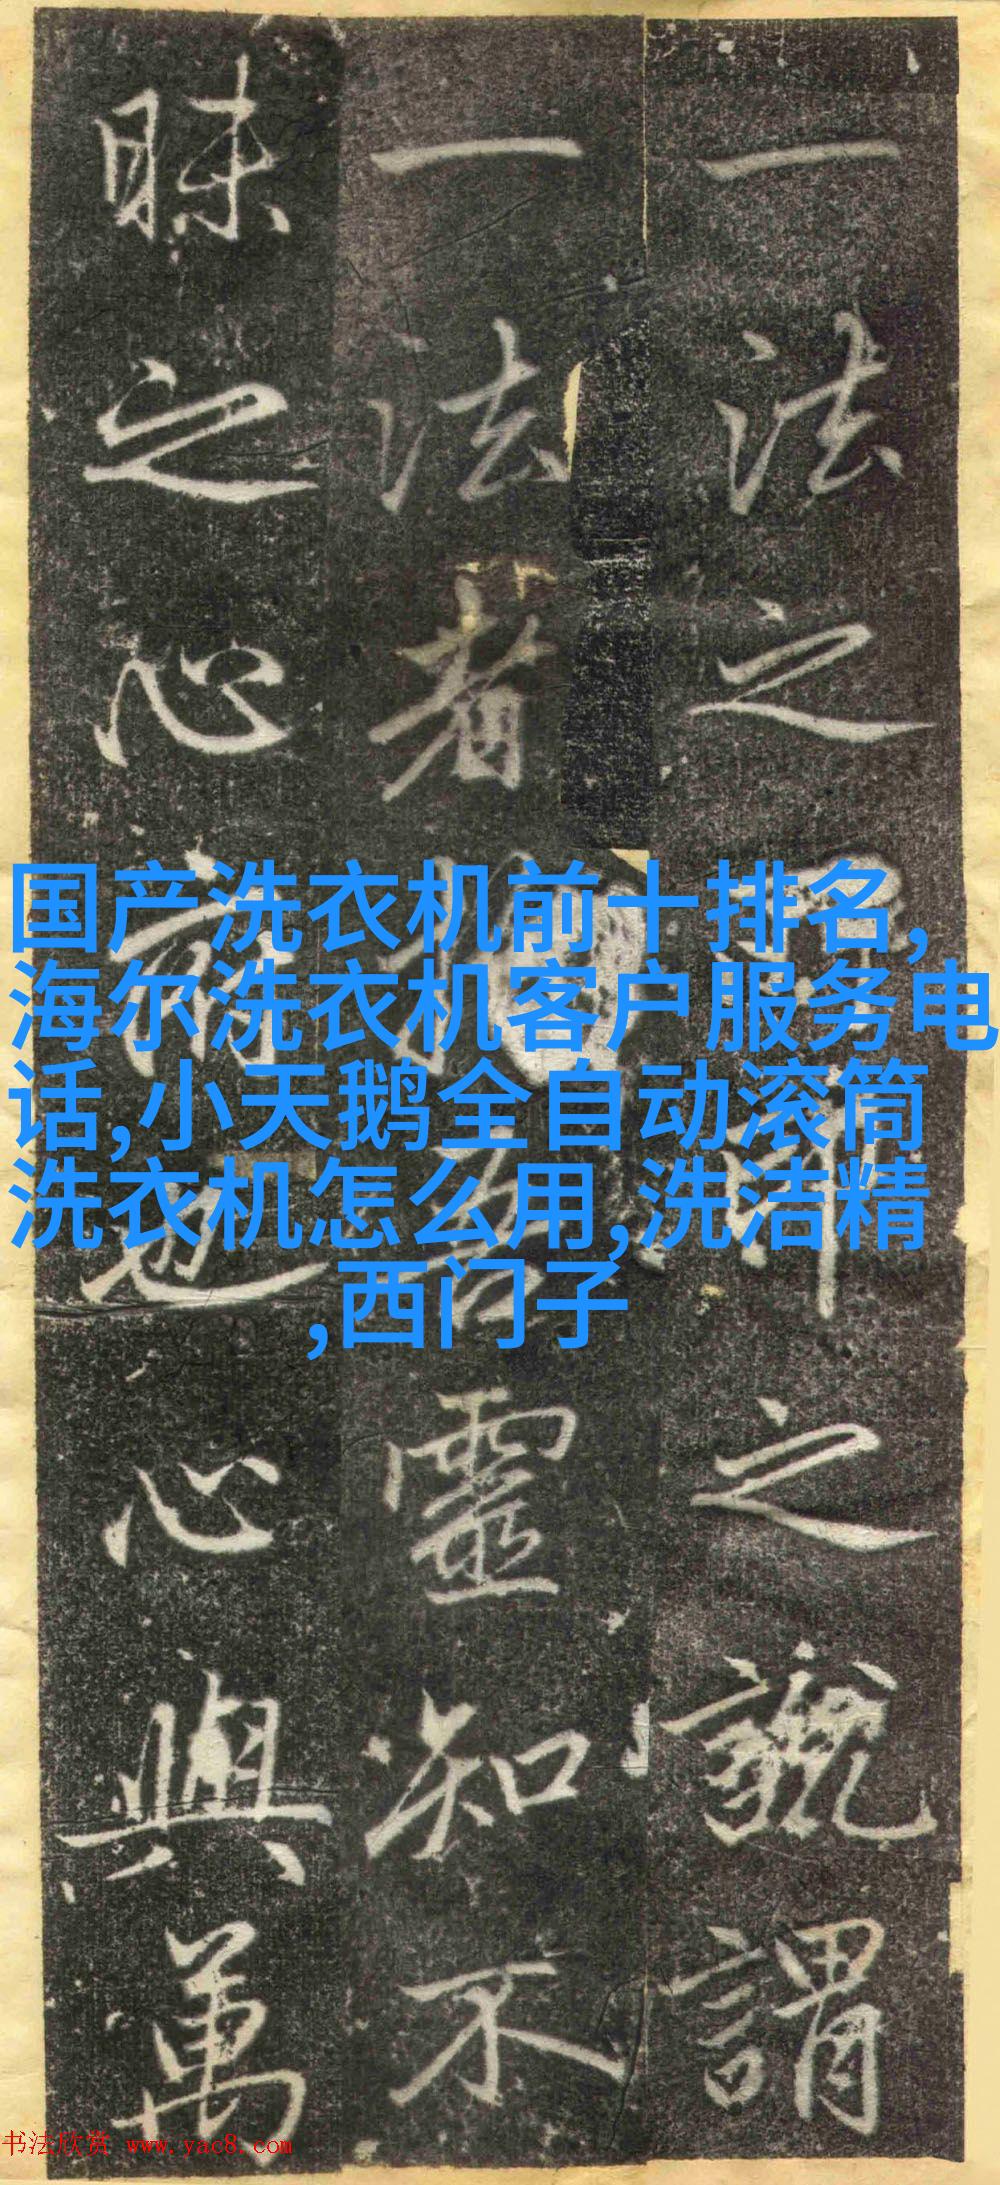 一法之之謂
一法者靈知不
昧之心也心與萬
国产洗衣机前十排名,
海尔洗衣机客户服务电
话,小天鹅全自动滚筒
洗衣机怎么用,洗洁精
,西门子
书法欣赏 www.yac8.com